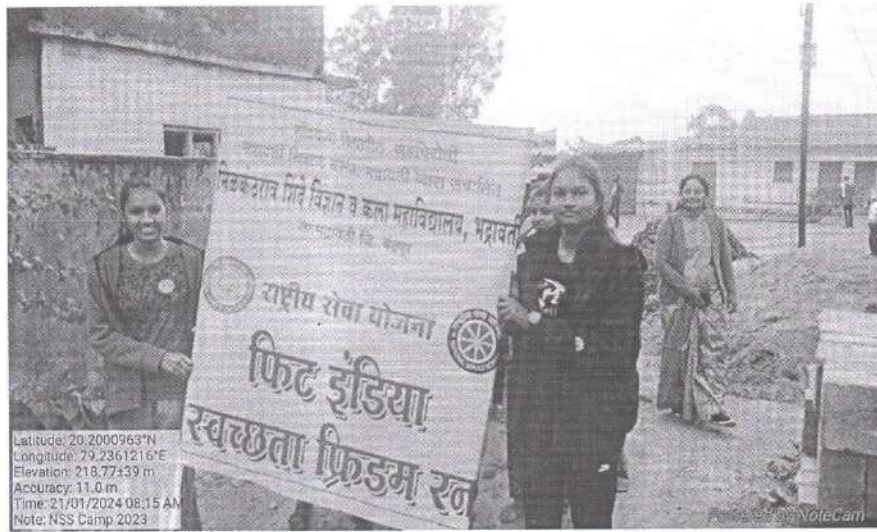 निळकंठराव शिंदे विज्ञान व कला महाविद्यालय, भद्रावती
राष्ट्रीय सेवा योजना
फिट इंडिया
स्वच्छता फ्रिडम रन
Latitude: 20.2000963°N
Longitude: 79.2361216°E
Elevation: 218.77±39 m
Accuracy: 11.0 m
Time: 21/01/2024 08:15 AM
Note: NSS Camp 2023
Powered by NoteCam